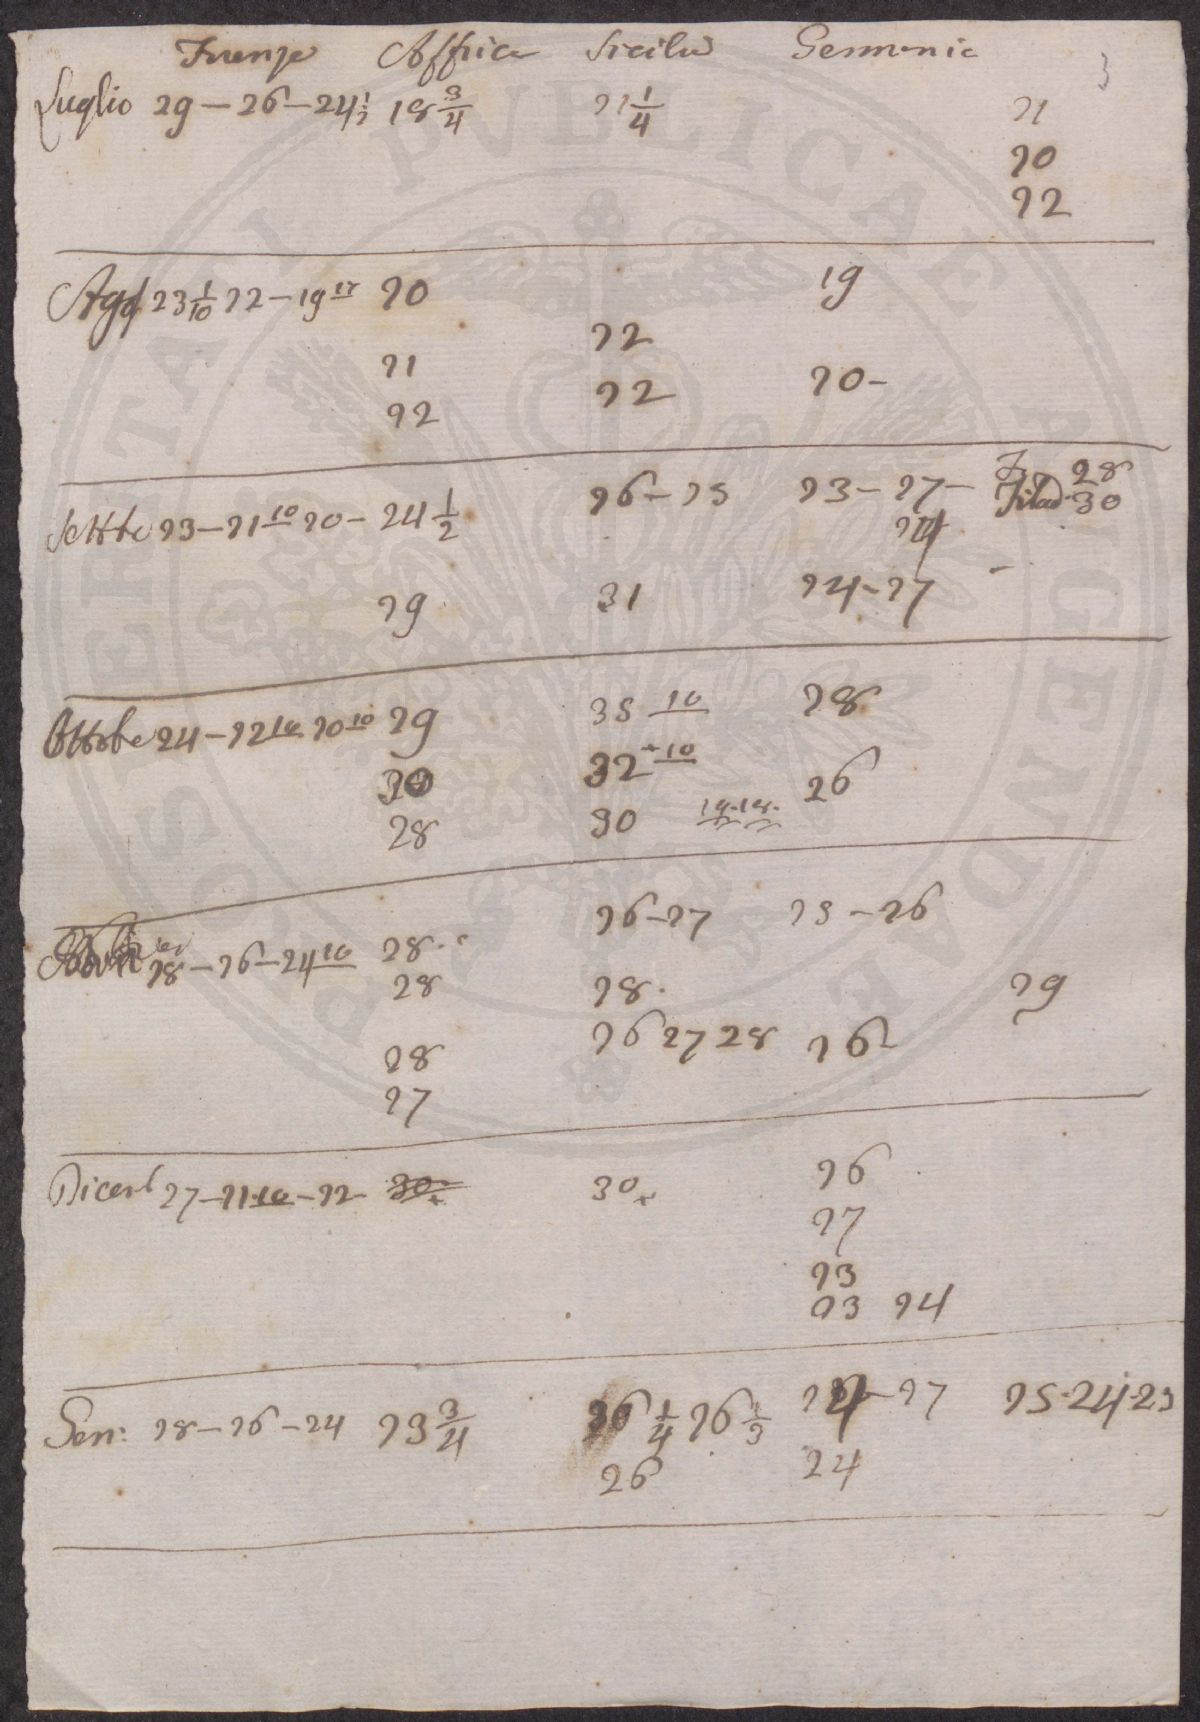 Firenze Affrica Sicilia Germania 3
Luglio 29 — 26 — 24 1/2 18 3/4 21 1/4 21
20
22
Ago 23 1/10 22 — 19 20 19
22
21 20 -
22 22
26 — 25 23 — 27 — 28
Settbe 23 — 21 10 20 — 24 1/2 Filad. 30
24
29 31 24 - 27
35 10 28
Ottobe 24 — 22 10 20 10 29
30 32 10 26
28 30
26 — 27 25 — 26
28 — 26 — 24 10 28
28 28 29
26 27 28 26
28
27
26
Dicenb 27 — 21 10 — 22 30 30
27
23
23 24
24 — 27 25 - 24 - 23
Gen: 28 — 26 — 24 23 3/4 26 1/4 26 1/3
26 24
POSTERITATI PVBLICAE AVGENDAE